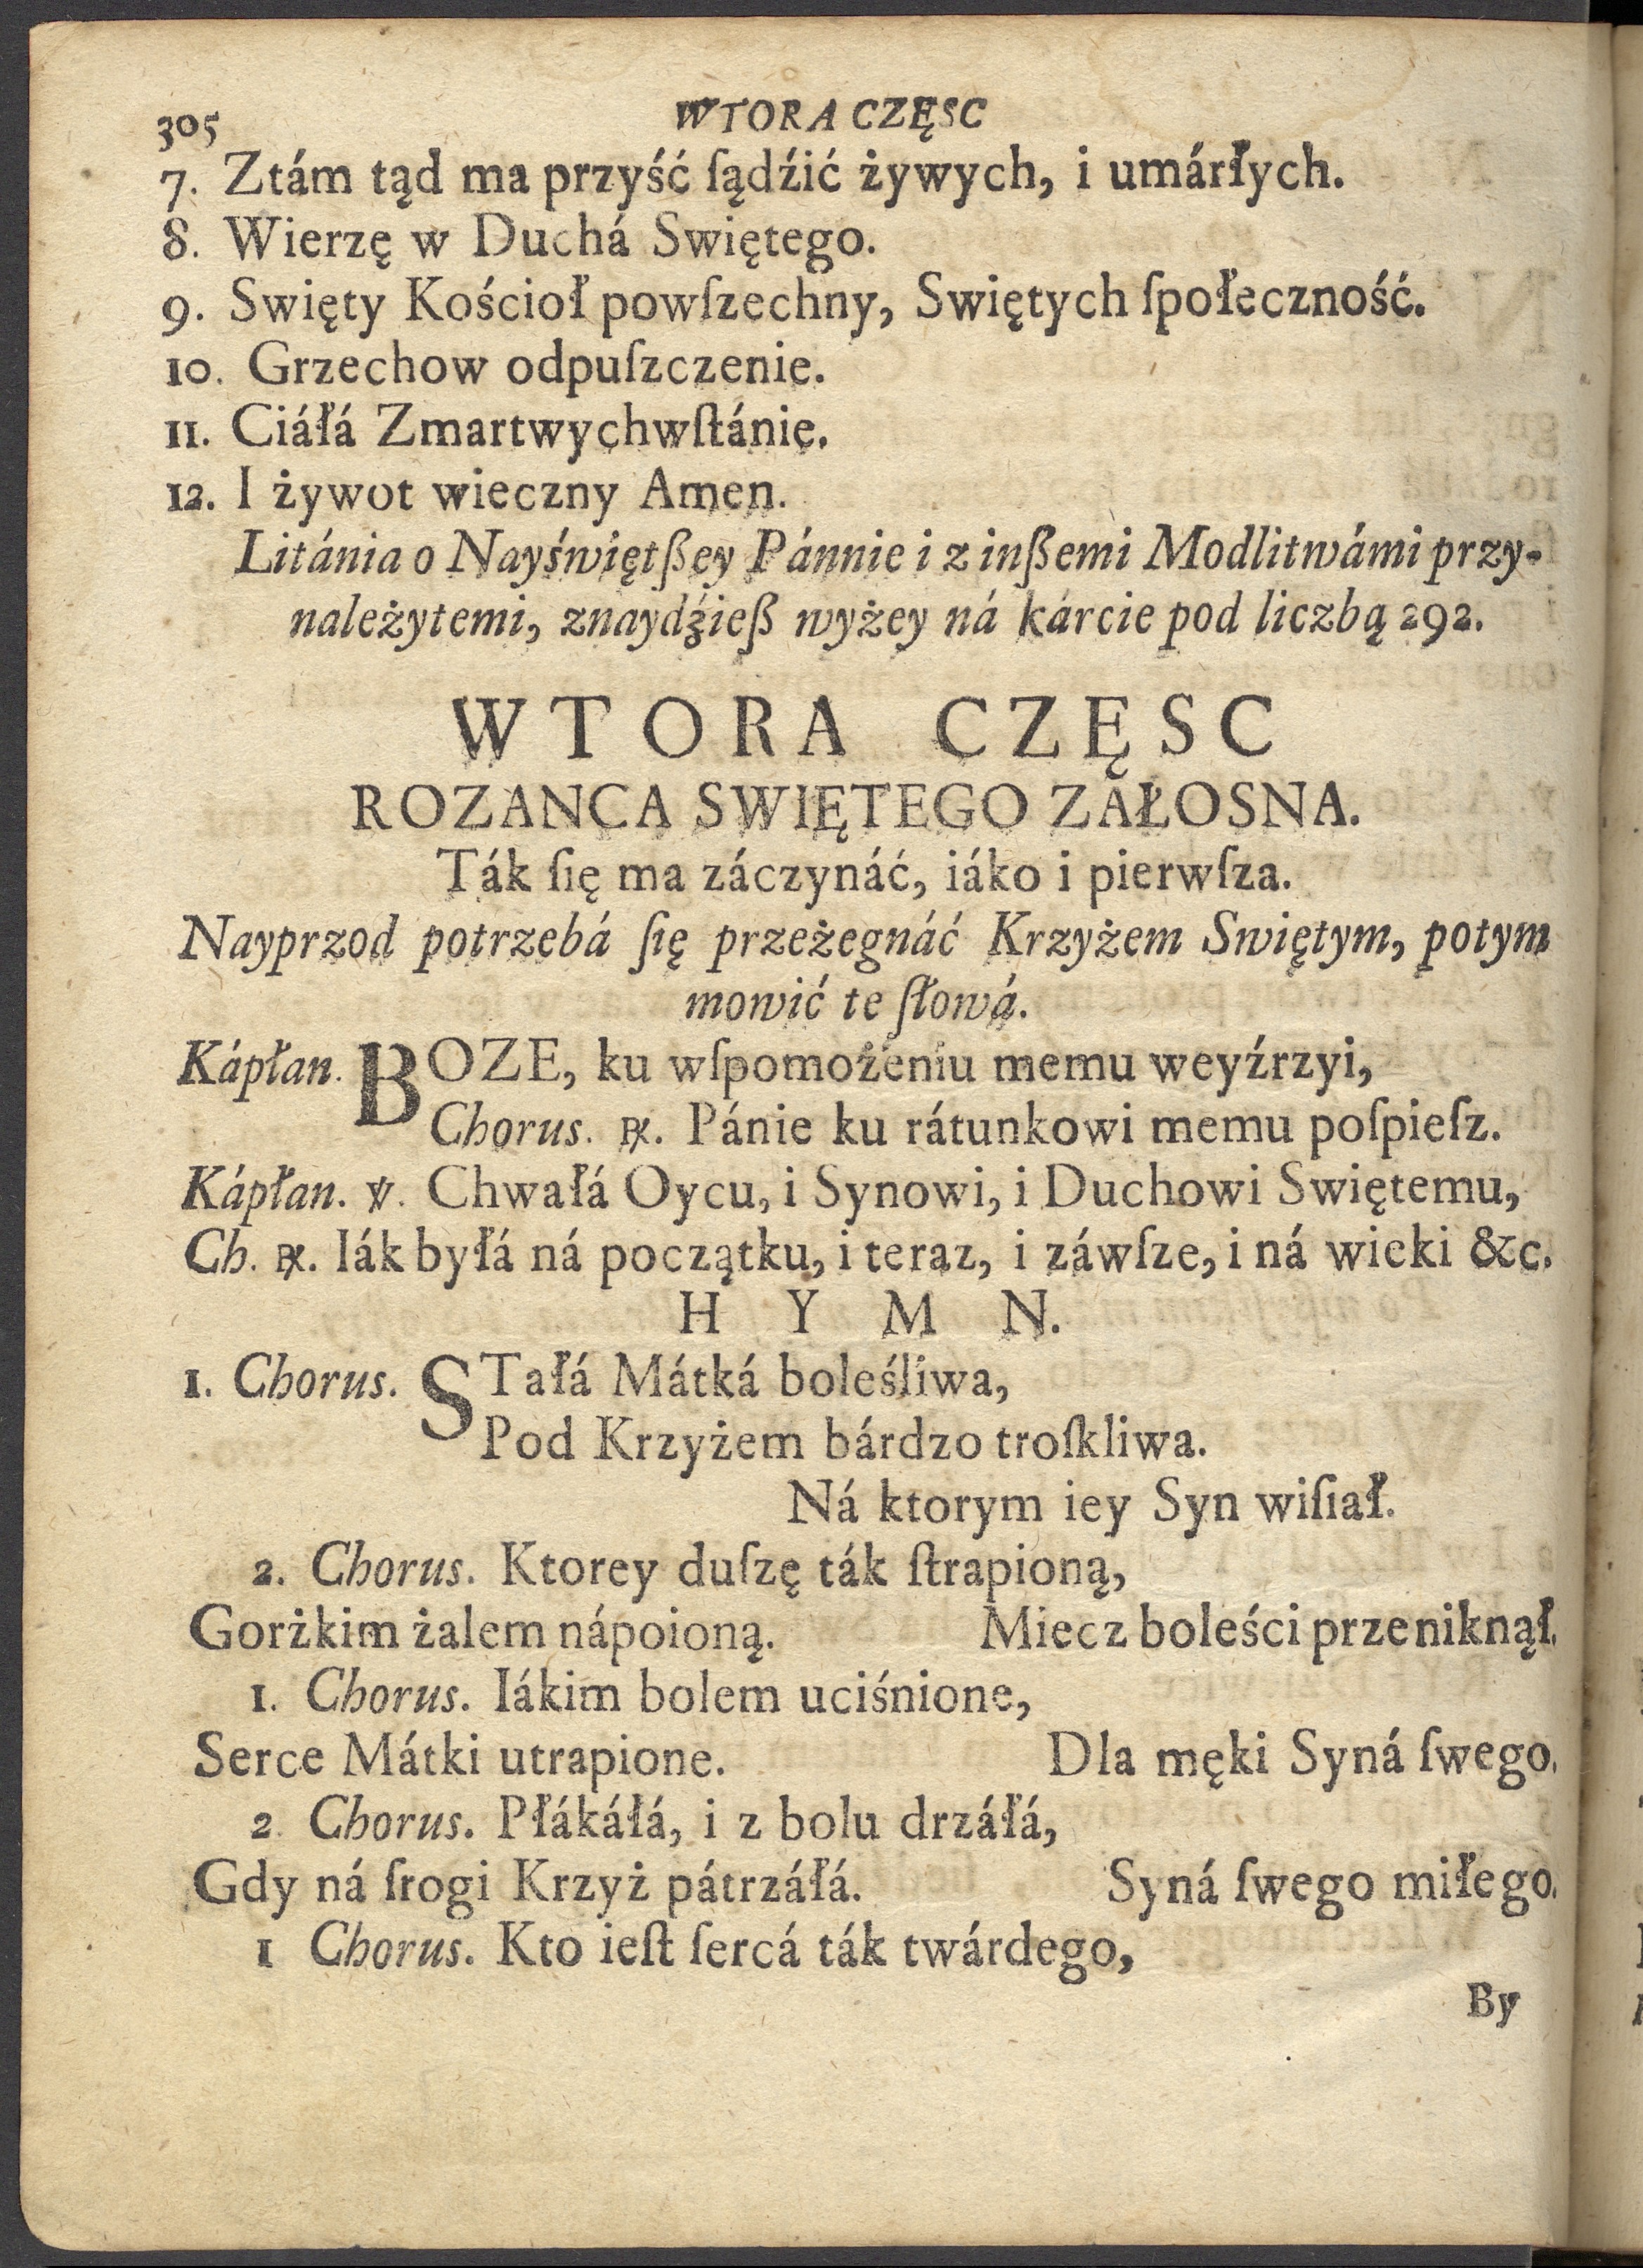 305 WTORA CZĘSC
7. Ztám tąd ma przyść ſądźić żywych, i umárłych.
8. Wierzę w Duchá Swiętego.
9. Swięty Kościoł powſzechny, Swiętych ſpołeczność.
10. Grzechow odpuſzczenie.
11. Ciáłá Zmartwychwſtánie.
12. I żywot wieczny Amen.
Litánia o Nayświętßey Pánnie i z inßemi Modlitwámi przy-
należytemi, znaydźieß wyżey ná kárcie pod liczbą 292.
WTORA CZĘSC
ROZANCA SWIĘTEGO ZAŁOSNA.
Ták ſię ma záczynáć, iáko i pierwſza.
Nayprzod potrzebá ſię przeżegnáć Krzyżem Swiętym, potym
mowić te ſłowá.
Kápłan. BOZE, ku wſpomożeniu memu weyźrzyi,
Chorus. ℟. Pánie ku rátunkowi memu poſpieſz.
Kápłan. ℣. Chwałá Oycu, i Synowi, i Duchowi Swiętemu,
Ch. ℟. Iák byłá ná początku, i teraz, i záwſze, i ná wieki &c.
HYMN.
1. Chorus. STałá Mátká boleśliwa,
Pod Krzyżem bárdzo troſkliwa.
Ná ktorym iey Syn wiſiał.
2. Chorus. Ktorey duſzę ták ſtrapioną,
Gorżkim żalem nápoioną. Miecz boleści przeniknął.
1. Chorus. Iákim bolem uciśnione,
Serce Mátki utrapione. Dla męki Syná ſwego.
2. Chorus. Płákáłá, i z bolu drzáłá,
Gdy ná ſrogi Krzyż pátrzáłá. Syná ſwego miłego.
1 Chorus. Kto ieſt ſercá ták twárdego,
By